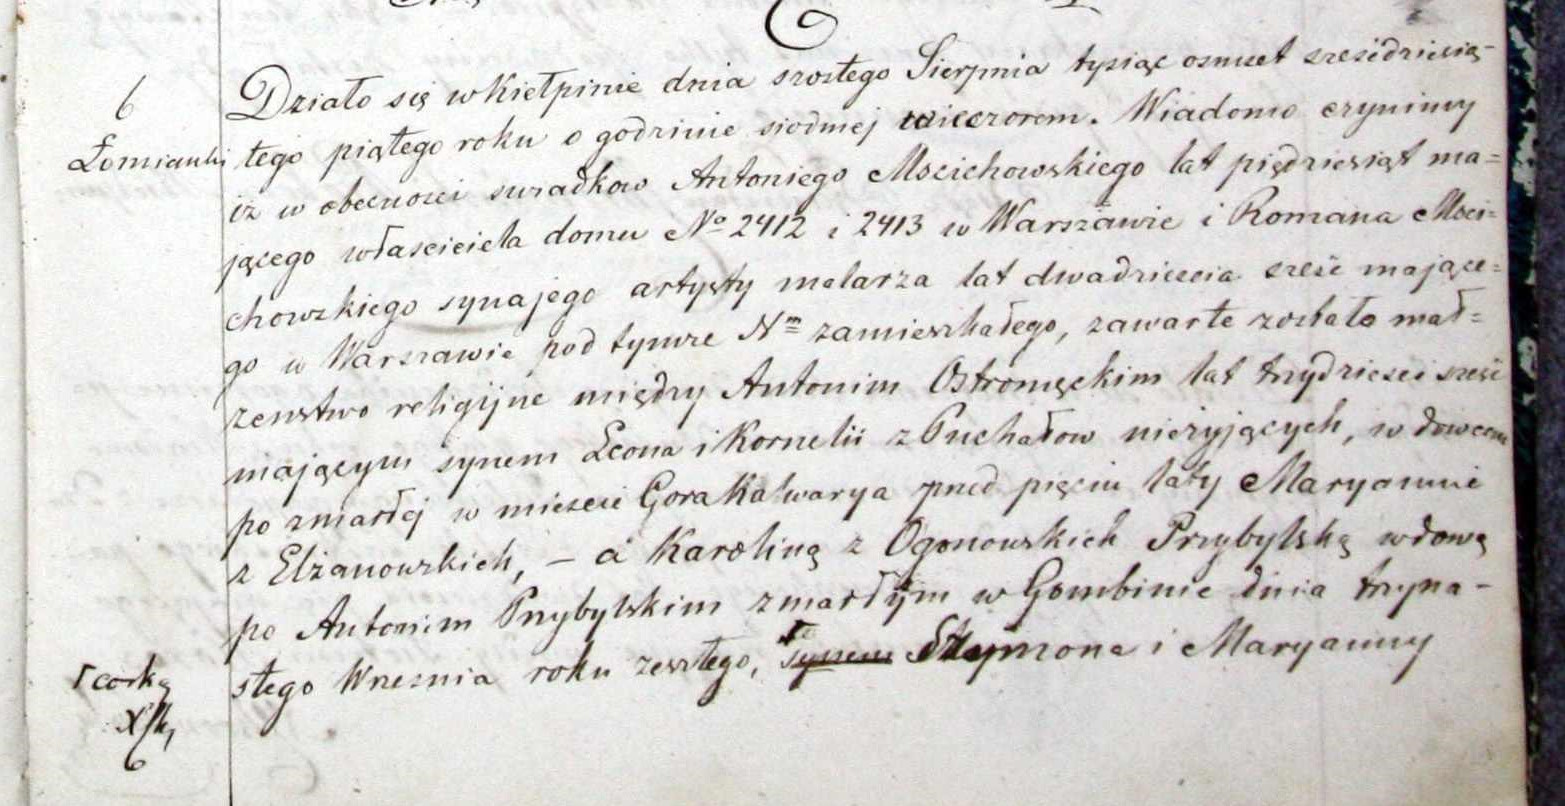 6
Łomianki
Działo się w Kiełpinie dnia szostego Sierpnia tysiąc osmset sześćdziesią-
tego piątego roku o godzinie siodmej wieczorem. Wiadomo czynimy
iż w obecnosci swiadkow Antoniego Mscichowskiego lat pięćdziesiąt ma=
jącego własciciela domu No 2412 i 2413 w Warszawie i Romana Msci=
chowskiego syna jego artysty malarza lat dwadziescia sześć mające=
go w Warszawie pod tymże Nm zamieszkałego, zawarte zostało mał=
zenstwo religijne między Antonim Ostromęckim lat trzydziesci sześć
mającym synem Leona i Kornelii z Puchałow nieżyjących, w dowcem
po zmarłej w miescie Gora Kalwarya przed pięciu laty Maryannie
z Elżanowskich, – a Karoliną z Ogonowskich Przybylską wdową
po Antonim Przybylskim zmarłym w Gombinie dnia trzyna-
stego Wrzesnia roku zeszłego, synem Szymona i Maryanny
corką